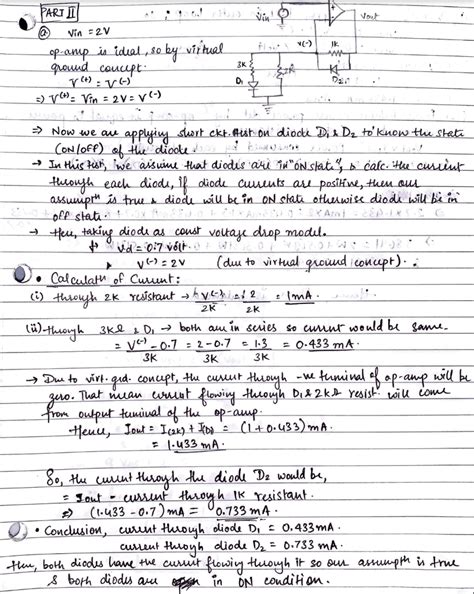 PART II
Vin
Vout
ⓐ Vin = 2V
op-amp is ideal, so by virtual
V(-)
1k
ground concept.
3K
2k
D2
V(+) = V(-)
D1
⇒ V(+) = Vin = 2V = V(-)
⇒ Now we are applying short ckt. test on diode D1 & D2 to know the state
(ON/OFF) of the diode.
→ In this test, we assume that diodes are in "ON state", & calc. the current
through each diode, if diode currents are positive, then our
assumptn is true & diode will be in ON state otherwise diode will be in
off state.
→ Here, taking diode as const voltage drop model.
Vd = 0.7 volt.
V(-) = 2V (due to virtual ground concept).
• Calculatn of Current:
(i) through 2K resistant → V(-)/2K = 2/2K = 1mA.
(ii) through 3KΩ & D1 → both are in series so current would be same.
= V(-) - 0.7 / 3K = 2-0.7 / 3K = 1.3 / 3K = 0.433 mA.
→ Due to virt. gnd. concept, the current through -ve terminal of op-amp will be
zero. That mean current flowing through D1 & 2kΩ resist. will come
from output terminal of the op-amp.
Hence, Iout = I(2K) + I(D1) = (1 + 0.433) mA.
= 1.433 mA.
So, the current through the diode D2 would be,
= Iout - current through 1K resistant.
⇒ (1.433 - 0.7) mA = 0.733 mA.
• Conclusion, current through diode D1 = 0.433 mA.
current through diode D2 = 0.733 mA.
then, both diodes have the current flowing through it so our assumptn is true
& both diodes are in ON condition.